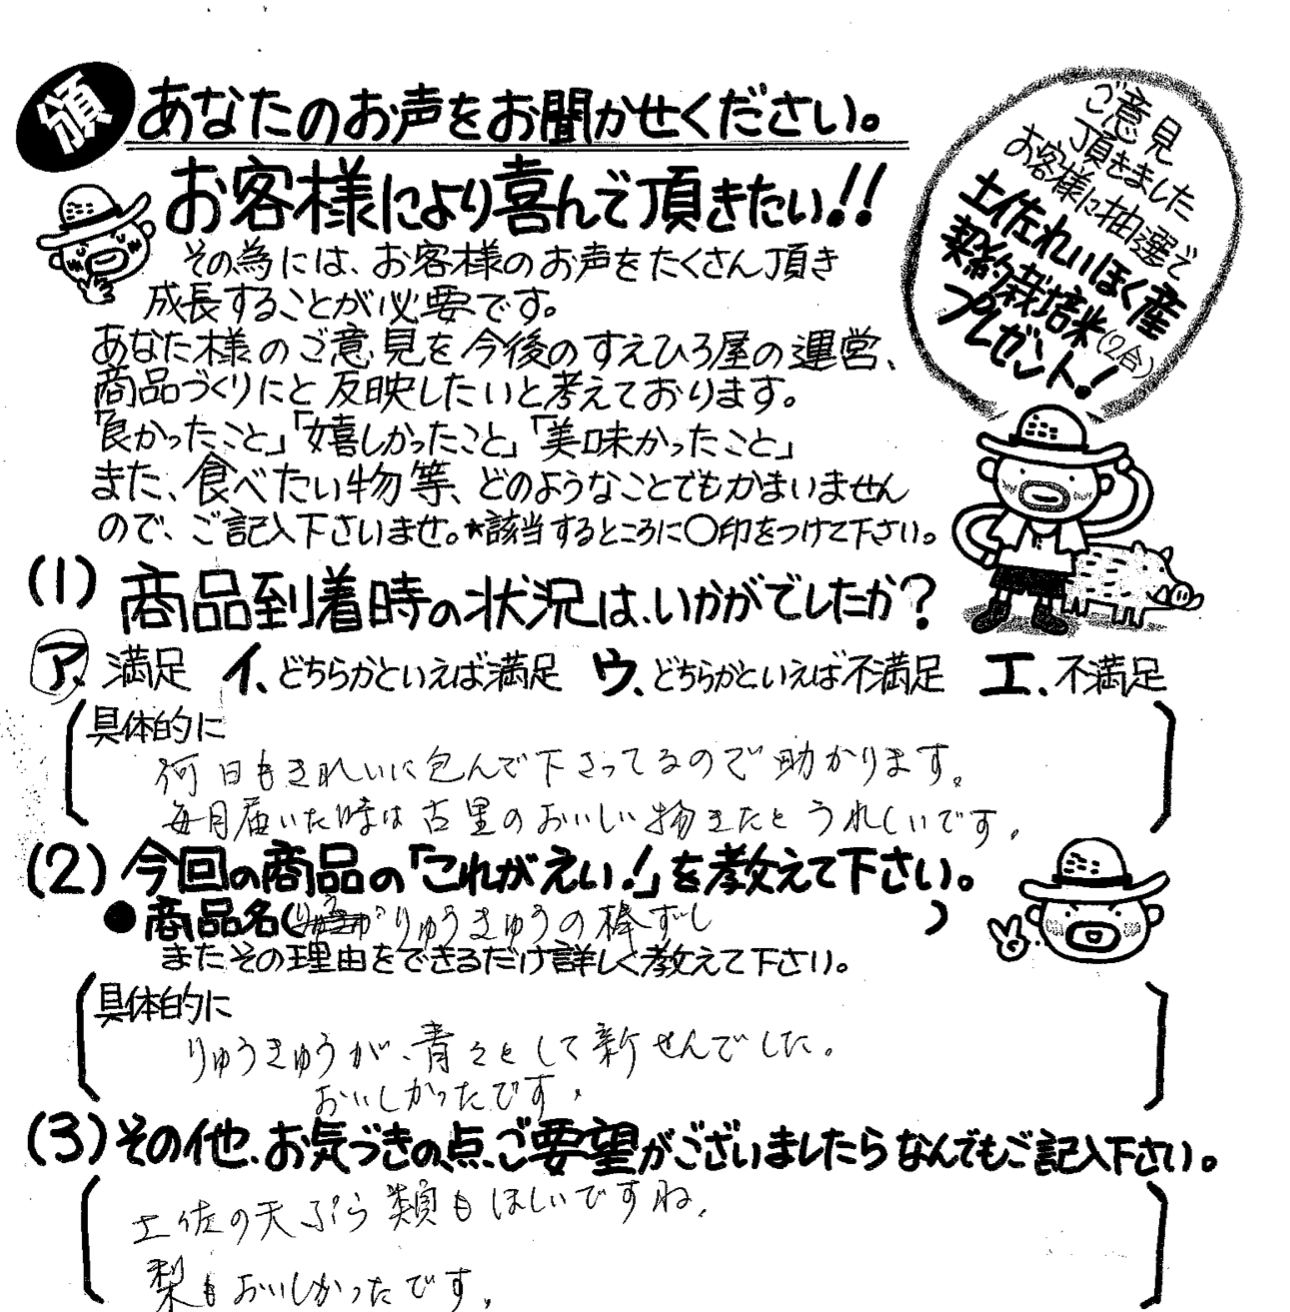 頒
あなたのお声をお聞かせください。
お客様により喜んで頂きたい!!
その為には、お客様のお声をたくさん頂き
成長することが必要です。
あなた様のご意見を今後のすえひろ屋の運営、
商品づくりにと反映したいと考えております。
「良かったこと」「嬉しかったこと」「美味かったこと」
また、食べたい物等、どのようなことでもかまいません
ので、ご記入下さいませ。★該当するところに○印をつけて下さい。
ご意見
頂きました
お客様に抽選で
土佐れいほく産
契約栽培米(2合)
プレゼント!
(1) 商品到着時の状況は、いかがでしたか?
ア、満足 イ、どちらかといえば満足 ウ、どちらかといえば不満足 エ、不満足
具体的に
何日もきれいに包んで下さってるので助かります。
毎月届いた時は古里のおいしい物きたとうれしいです。
(2) 今回の商品の「これがえい!」を教えて下さい。
●商品名(りゅうきゅうの棒ずし)
またその理由をできるだけ詳しく教えて下さい。
具体的に
りゅうきゅうが、青々として新せんでした。
おいしかったです。
(3) その他、お気づきの点、ご要望がございましたらなんでもご記入下さい。
土佐の天ぷら類もほしいですね。
梨もおいしかったです。